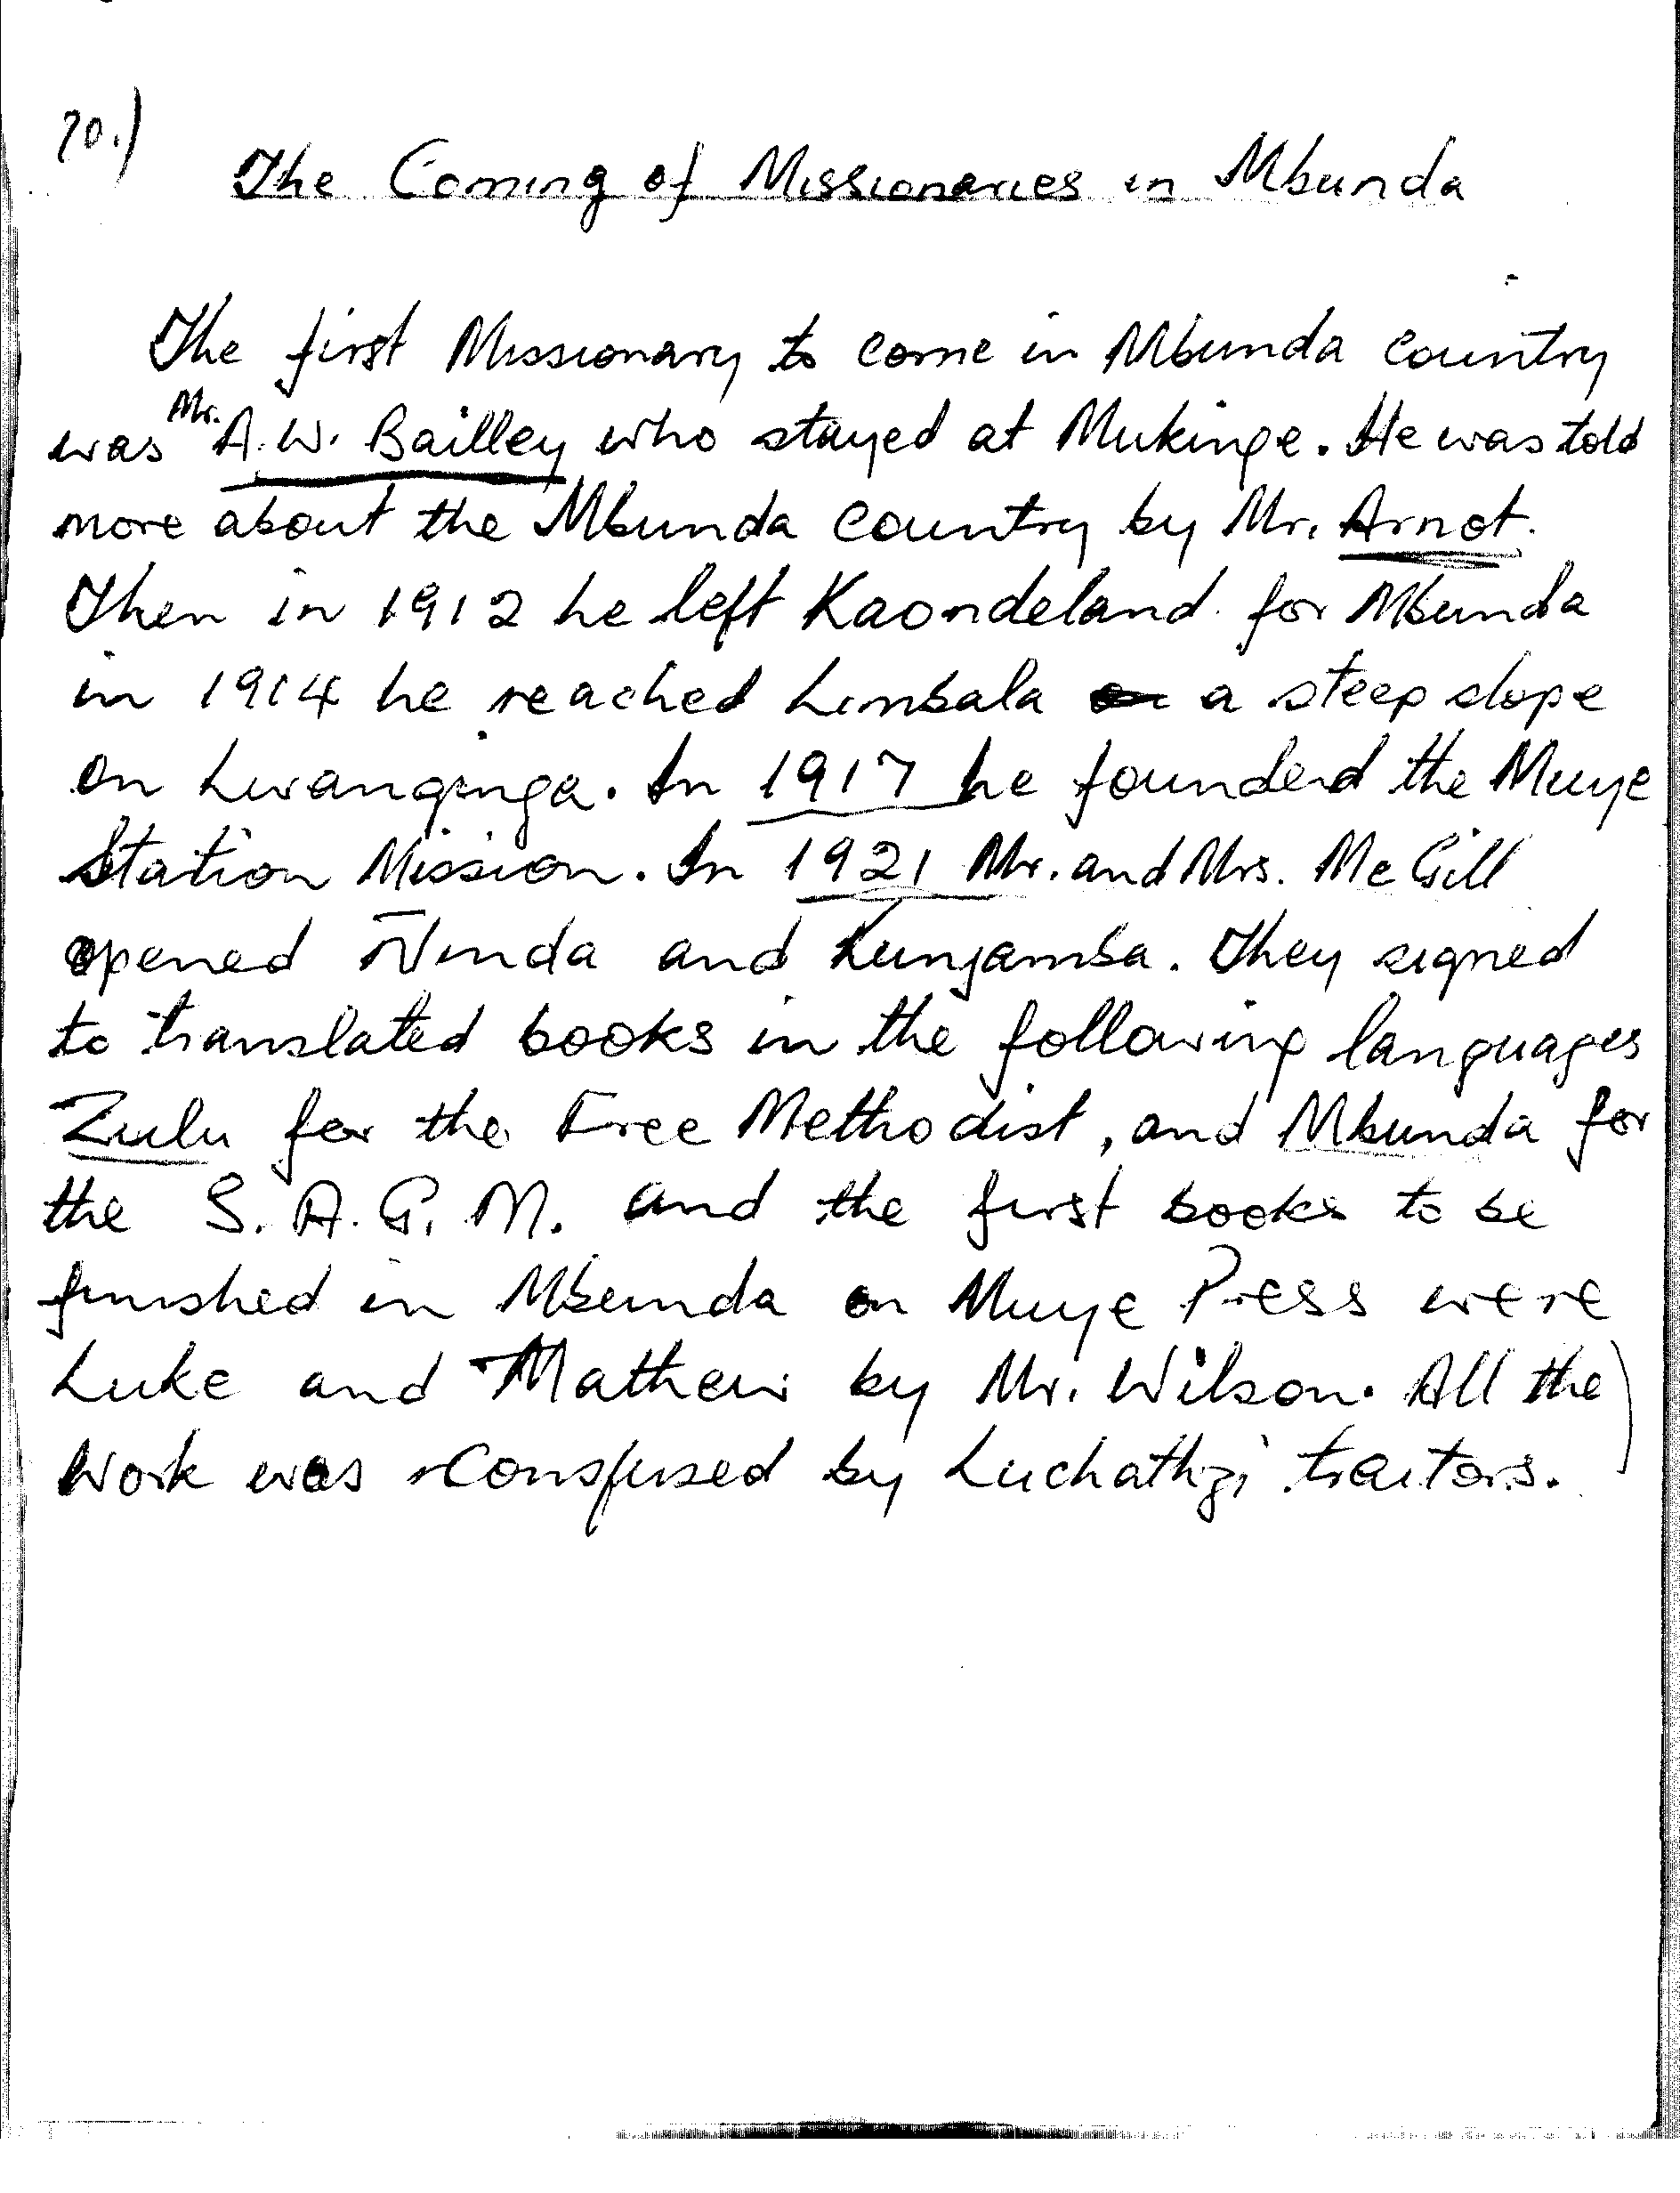 70.)
The Coming of Missionaries in Mbunda
The first Missionary to come in Mbunda country
was Mr. A.W. Bailley who stayed at Mukinge. He was told
more about the Mbunda country by Mr. Arnot.
Then in 1912 he left Kaondeland for Mbunda
in 1914 he reached Limbala a steep slope
on Lwanginga. In 1917 he founded the Muye
Station Mission. In 1921 Mr. and Mrs. Mc Gill
opened Ninda and Lunjamba. They signed
to translated books in the following languages
Zulu for the Free Methodist, and Mbunda for
the S. A. G. M. and the first books to be
finished in Mbunda on Muye Press were
Luke and Mathew by Mr. Wilson. All the
work was consfused by Luchathzi traitors.